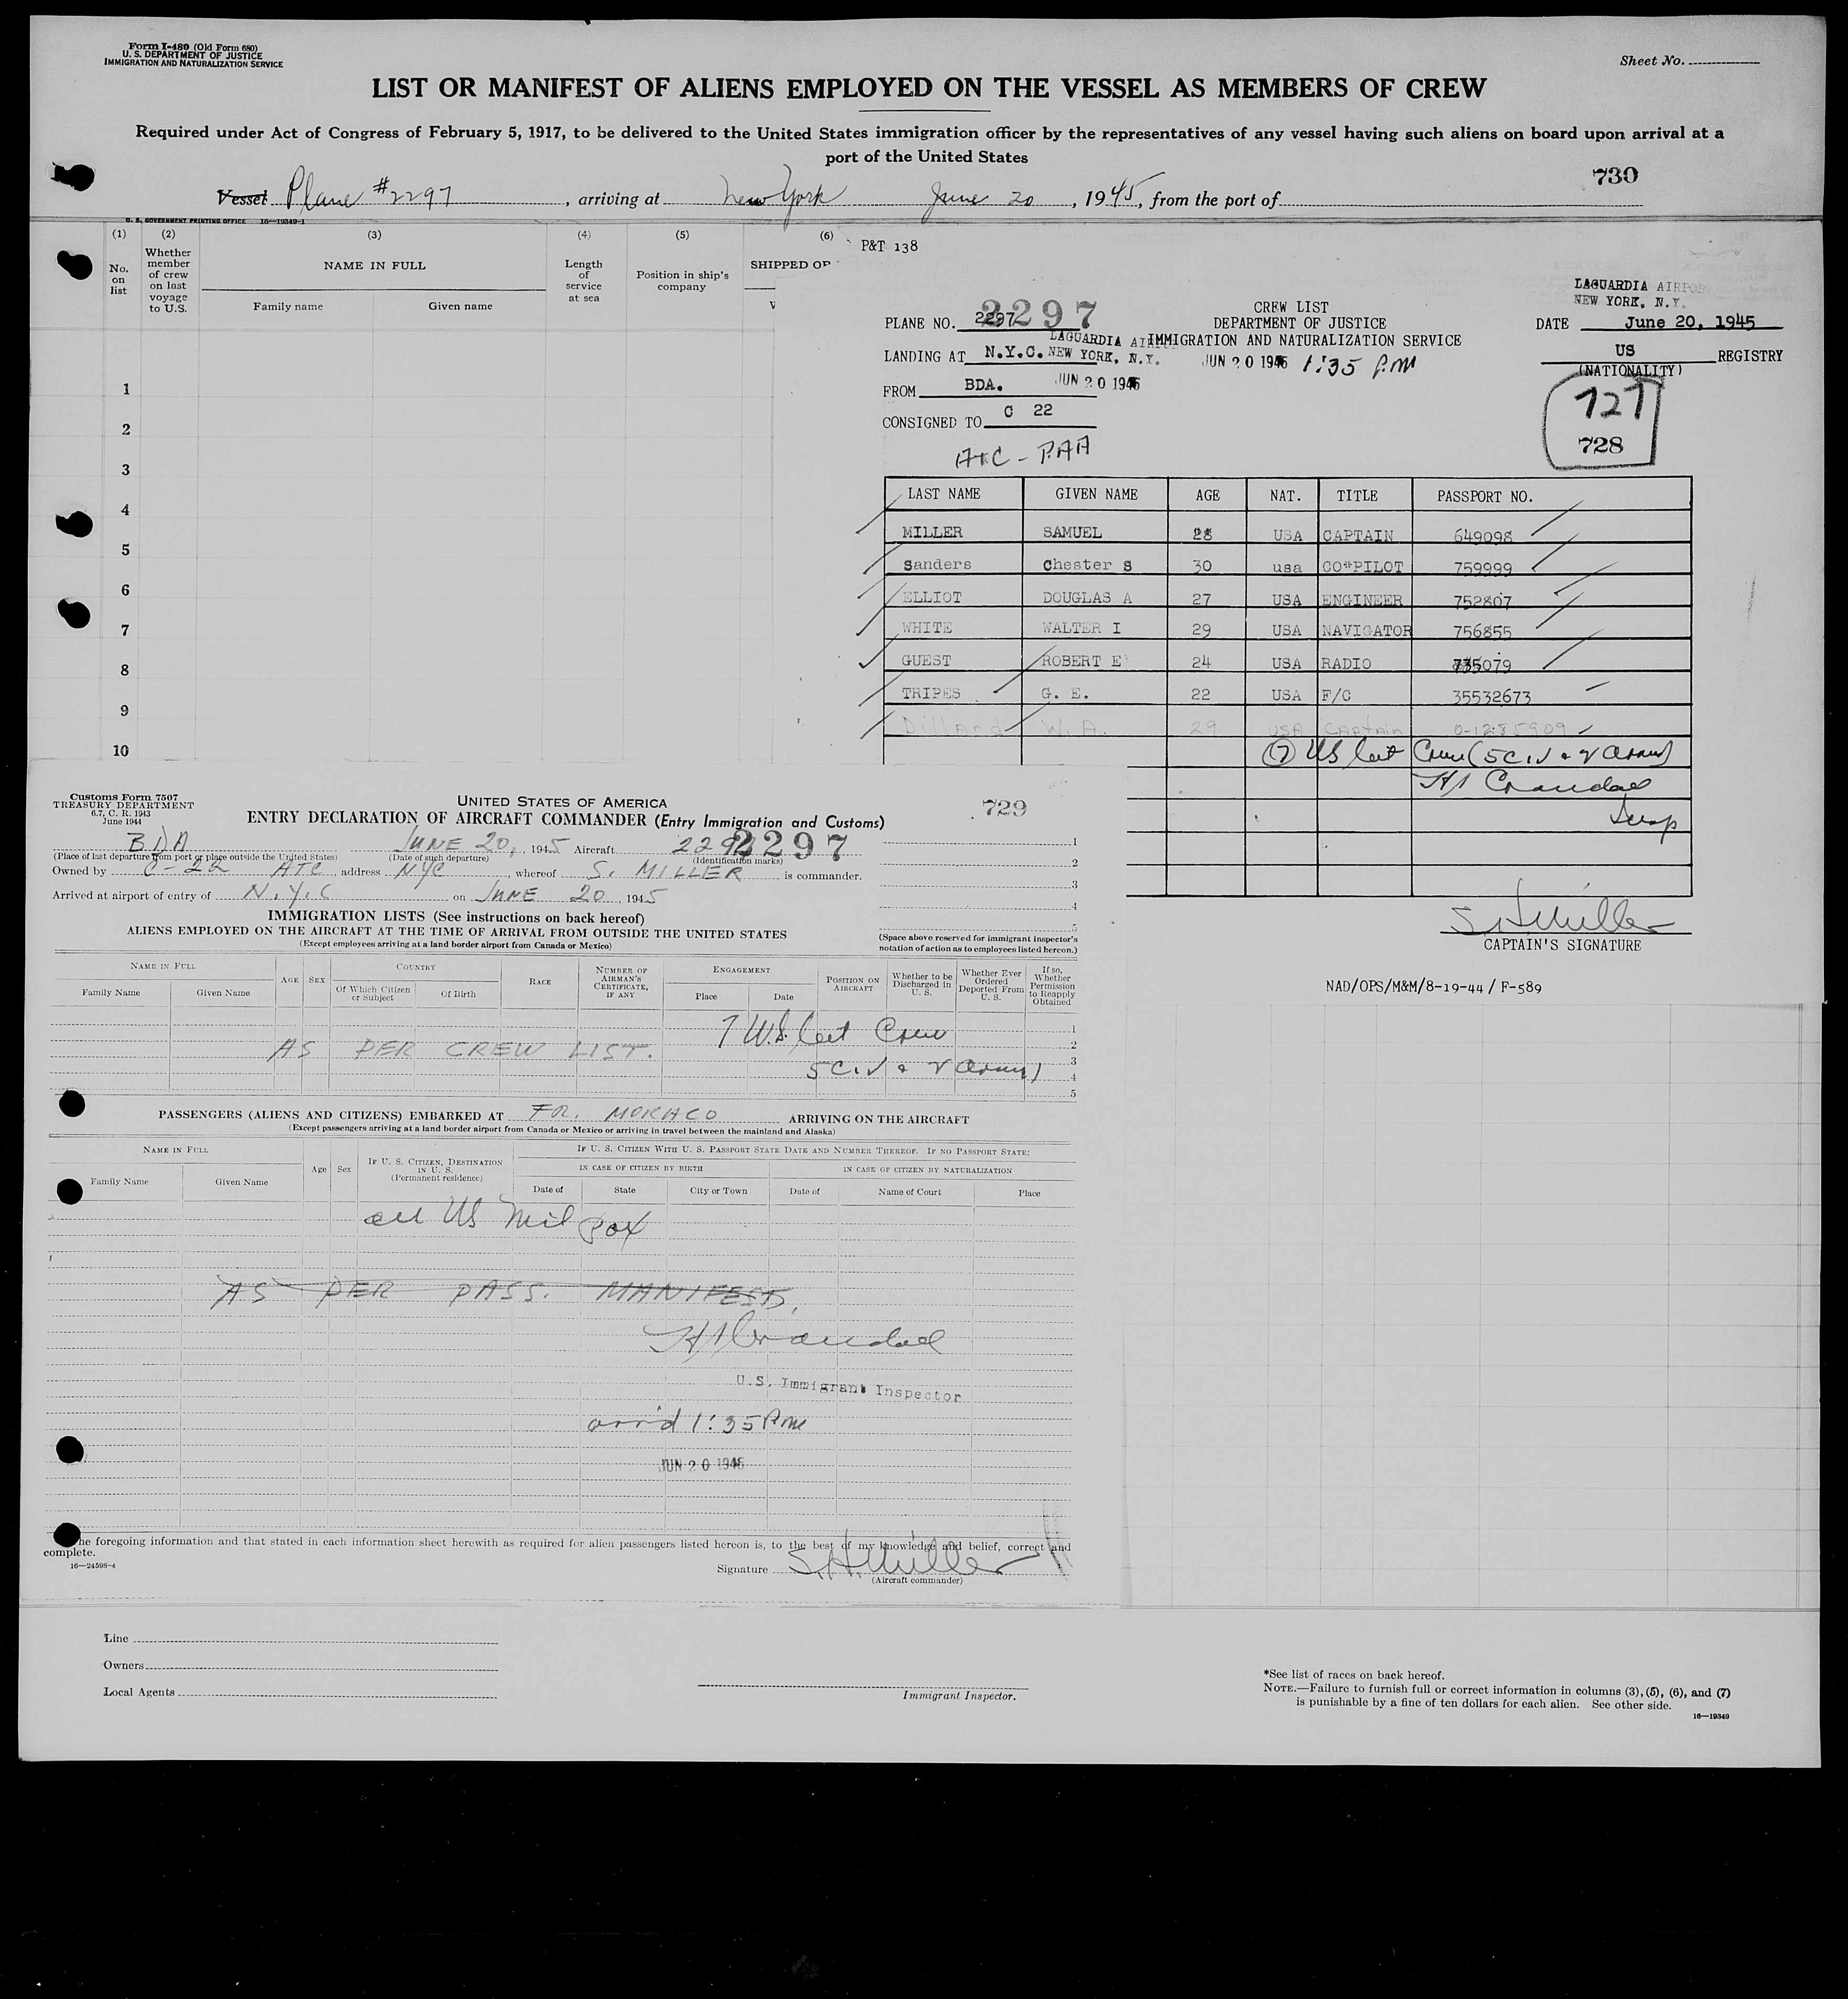 Form I-480 (Old Form 680)
U. S. DEPARTMENT OF JUSTICE
IMMIGRATION AND NATURALIZATION SERVICE
Sheet No.
LIST OR MANIFEST OF ALIENS EMPLOYED ON THE VESSEL AS MEMBERS OF CREW
Required under Act of Congress of February 5, 1917, to be delivered to the United States immigration officer by the representatives of any vessel having such aliens on board upon arrival at a
port of the United States
730
Vessel Plane #2297, arriving at New York June 20, 1945, from the port of
U. S. GOVERNMENT PRINTING OFFICE 16—19349-1
(1) (2) (3) (4) (5) (6)
No. on list
Whether member of crew on last voyage to U.S.
NAME IN FULL
Family name Given name
Length of service at sea
Position in ship's company
SHIPPED OR
1
2
3
4
5
6
7
8
9
10
P&T 138
LAGUARDIA AIRPOR
NEW YORK, N.Y.
2297
CREW LIST
PLANE NO. 2297 DEPARTMENT OF JUSTICE DATE June 20, 1945
LAGUARDIA AIR IMMIGRATION AND NATURALIZATION SERVICE
LANDING AT N.Y.C. NEW YORK, N.Y. JUN 20 1945 1:35 P.M US REGISTRY
(NATIONALITY)
FROM BDA. JUN 20 1945
CONSIGNED TO C 22
727
728
ATC - PAA
LAST NAME GIVEN NAME AGE NAT. TITLE PASSPORT NO.
MILLER SAMUEL 28 USA CAPTAIN 649098
Sanders Chester S 30 usa CO*PILOT 759999
ELLIOT DOUGLAS A 27 USA ENGINEER 752807
WHITE WALTER I 29 USA NAVIGATOR 756855
GUEST ROBERT E 24 USA RADIO 735079
TRIPES G. E. 22 USA F/C 35532673
Dillard W. A. 29 USA Captain 0-1285909
(7) US Cit Crew (5 Civ & 2 Army)
H Crandall
Insp
S. H. Miller
CAPTAIN'S SIGNATURE
NAD/OPS/M&M/8-19-44 / F-589
Customs Form 7507
TREASURY DEPARTMENT
6.7, C. R. 1943
June 1944
UNITED STATES OF AMERICA
729
ENTRY DECLARATION OF AIRCRAFT COMMANDER (Entry Immigration and Customs)
BDA JUNE 20, 1945 Aircraft 2297 2297
(Place of last departure from port or place outside the United States) (Date of such departure) (Identification marks)
Owned by C-22 ATC, address NYC, whereof S. MILLER is commander.
Arrived at airport of entry of N.Y.C on JUNE 20, 1945
1
2
3
4
5
(Space above reserved for immigrant inspector's notation of action as to employees listed hereon.)
IMMIGRATION LISTS (See instructions on back hereof)
ALIENS EMPLOYED ON THE AIRCRAFT AT THE TIME OF ARRIVAL FROM OUTSIDE THE UNITED STATES
(Except employees arriving at a land border airport from Canada or Mexico)
NAME IN FULL
Family Name Given Name
AGE SEX
COUNTRY
Of Which Citizen or Subject Of Birth
RACE
NUMBER OF AIRMAN'S CERTIFICATE, IF ANY
ENGAGEMENT
Place Date
POSITION ON AIRCRAFT
Whether to be Discharged in U. S.
Whether Ever Ordered Deported From U. S.
If so, Whether Permission to Reapply Obtained
7 U.S. Cit Crew
AS PER CREW LIST.
5 Civ & 2 Army)
1
2
3
4
5
PASSENGERS (ALIENS AND CITIZENS) EMBARKED AT FR. MOROCCO ARRIVING ON THE AIRCRAFT
(Except passengers arriving at a land border airport from Canada or Mexico or arriving in travel between the mainland and Alaska)
NAME IN FULL
Family Name Given Name
Age Sex
IF U. S. CITIZEN, DESTINATION IN U. S. (Permanent residence)
IF U. S. CITIZEN WITH U. S. PASSPORT STATE DATE AND NUMBER THEREOF. IF NO PASSPORT STATE:
IN CASE OF CITIZEN BY BIRTH IN CASE OF CITIZEN BY NATURALIZATION
Date of State City or Town Date of Name of Court Place
all US Mil Pax
AS PER PASS. MANIFEST.
H Crandall
U.S. Immigrant Inspector
arr'd 1:35 PM
JUN 20 1945
The foregoing information and that stated in each information sheet herewith as required for alien passengers listed hereon is, to the best of my knowledge and belief, correct and
complete.
16—24598-4
Signature S. H. Miller
(Aircraft commander)
Line
Owners
Local Agents
Immigrant Inspector.
*See list of races on back hereof.
NOTE.—Failure to furnish full or correct information in columns (3), (5), (6), and (7)
is punishable by a fine of ten dollars for each alien. See other side.
16—19349